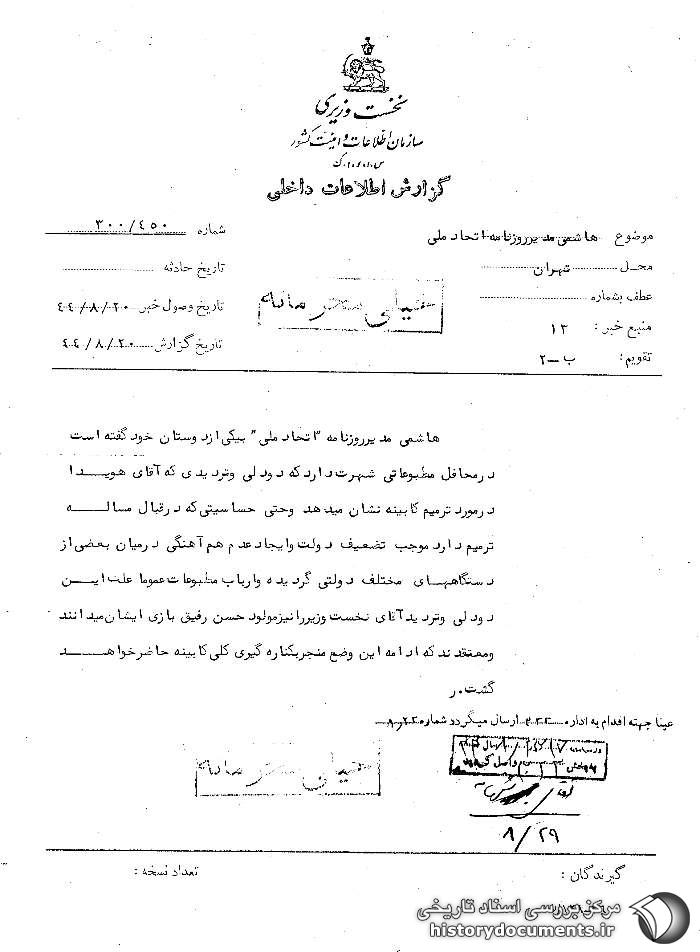 نخست وزیری
سازمان اطلاعات و امنیت کشور
س.ا.و.ا.ک
گزارش اطلاعات داخلی
موضوع هاشمی مدیرروزنامه اتحاد ملی
شماره ۳۰۰/۴۵۰
محل تهران
تاریخ حادثه
عطف بشماره
تاریخ وصول خبر ۴۴/۸/۲۰
منبع خبر: ۱۲
تاریخ گزارش ۴۴/۸/۲۰
تقویم: ب-۲
خیلی محرمانه
هاشمی مدیرروزنامه "اتحاد ملی" بیکی ازدوستان خود گفته است
درمحافل مطبوعاتی شهرت دارد که دودلی وتردیدی که آقای هویدا
درمورد ترمیم کابینه نشان میدهد وحتی حساسیتی که درقبال مساله
ترمیم دارد موجب تضعیف دولت وایجاد عدم هم آهنگی درمیان بعضی از
دستگاههای مختلف دولتی گردیده وارباب مطبوعات عموما علت این
دودلی وتردید آقای نخست وزیررانیزمولود حسن رفیق بازی ایشان میدانند
ومعتقدند که ادامه این وضع منجربکناره گیری کلی کابینه حاضرخواهد
گشت. ر
عینا جهته اقدام به اداره ۳۲۲ ارسال میگردد شماره
خیلی محرمانه
۸/۲۹
گیرندگان:
تعداد نسخه:
مرکز بررسی اسناد تاریخی
historydocuments.ir